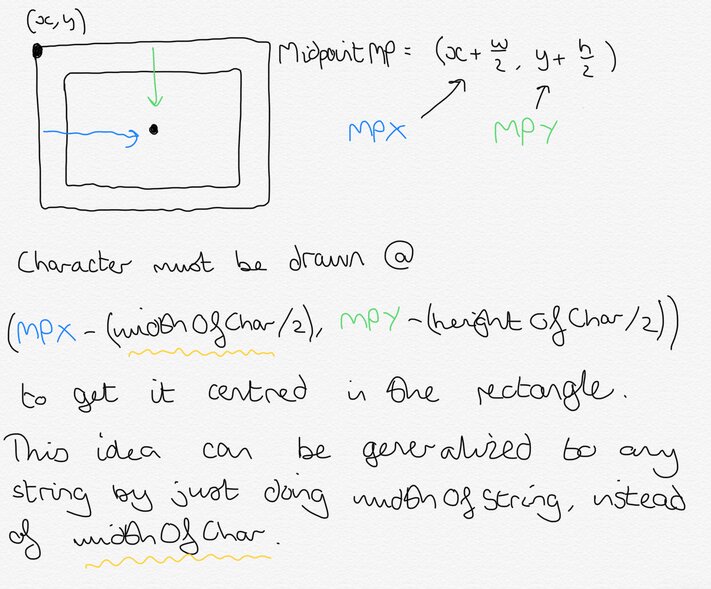 (x, y)
Midpoint MP = (x + w/2, y + h/2)
MPX MPY
Character must be drawn @
(MPX - (widthOfChar/2), MPY - (heightOfChar/2))
to get it centred in the rectangle.
This idea can be generalized to any
string by just doing widthOfString, instead
of widthOfChar.